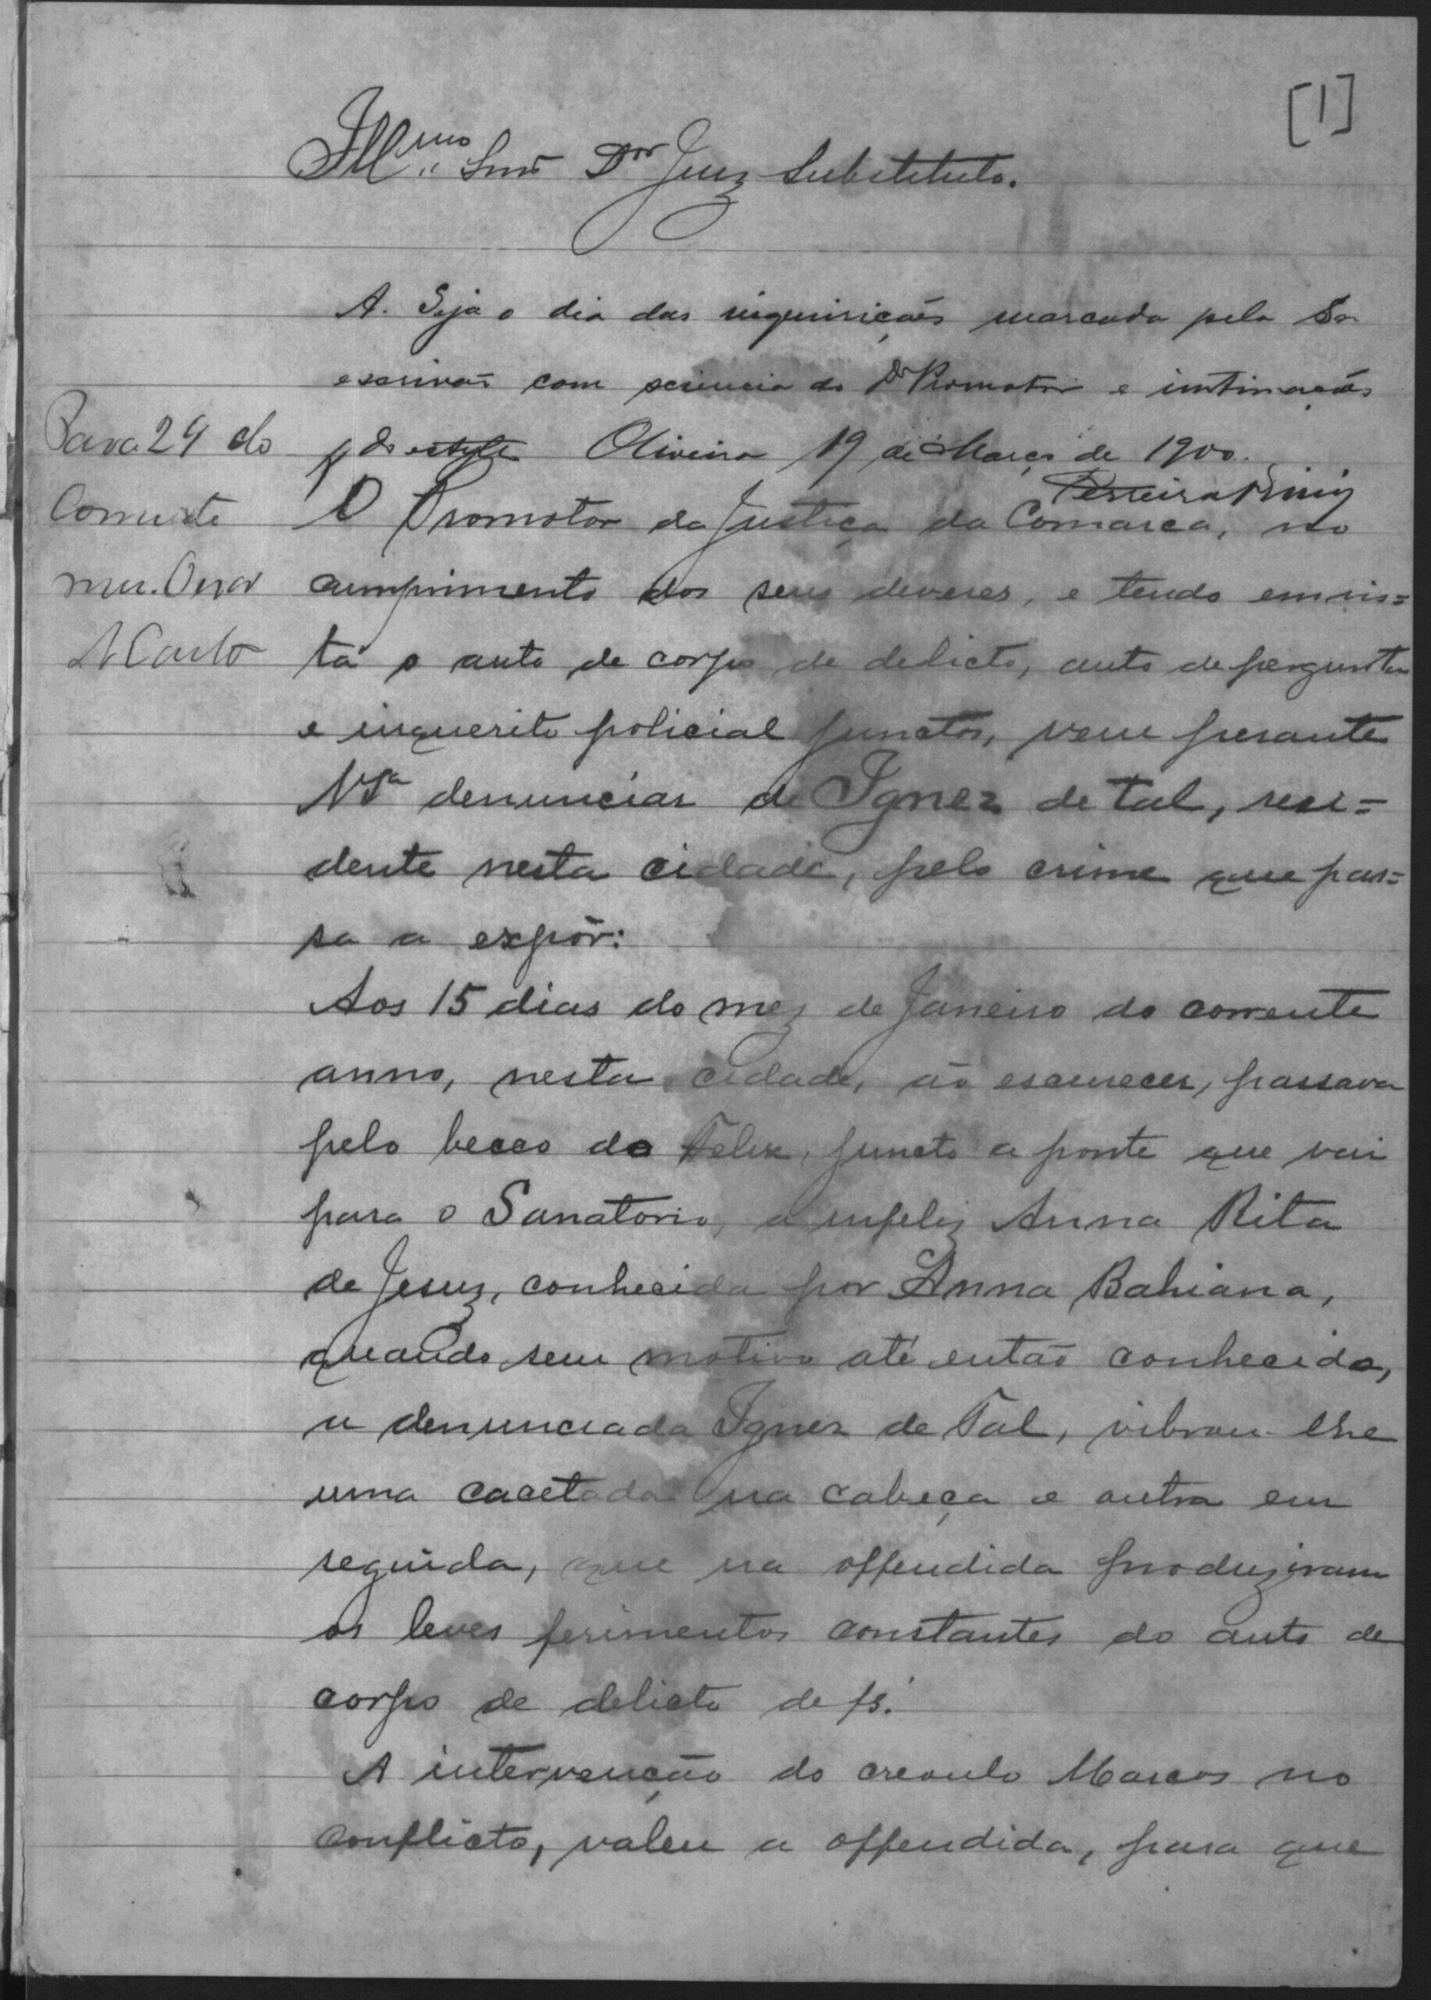 [1]
Illmo Snr Dor Juiz Substituto.
A. Seja o dia das inquirições marcado pelo Sr.
escrivão com sciencia do Dr Promotor e intimações
do estylo Oliveira 19 de Março de 1900.
Para 24 do
Corrente
O Promotor da Justiça da Comarca, no
cumprimento dos seus deveres, e tendo em vis=
ta o auto de corpo de delicto, auto de perguntas
e inquerito policial junctos, vem perante
VSa denunciar de Ignez de tal, resi=
dente nesta cidade, pelo crime que pas=
sa a expôr:
Aos 15 dias do mez de Janeiro do corrente
anno, nesta cidade, ao escurecer, passava
pelo becco do Felix, juncto a ponte que vai
para o Sanatorio, a infeliz Anna Rita
de Jesuz, conhecida por Anna Bahiana,
quando sem motivo até então conhecido,
a denunciada Ignez de Tal, vibrou-lhe
uma cacetada na cabeça e outra em
seguida, que na offendida produziram
os leves ferimentos constantes do auto de
corpo de delicto de fs.
A intervenção do creoulo Marcos no
conflicto, valeu a offendida, para que